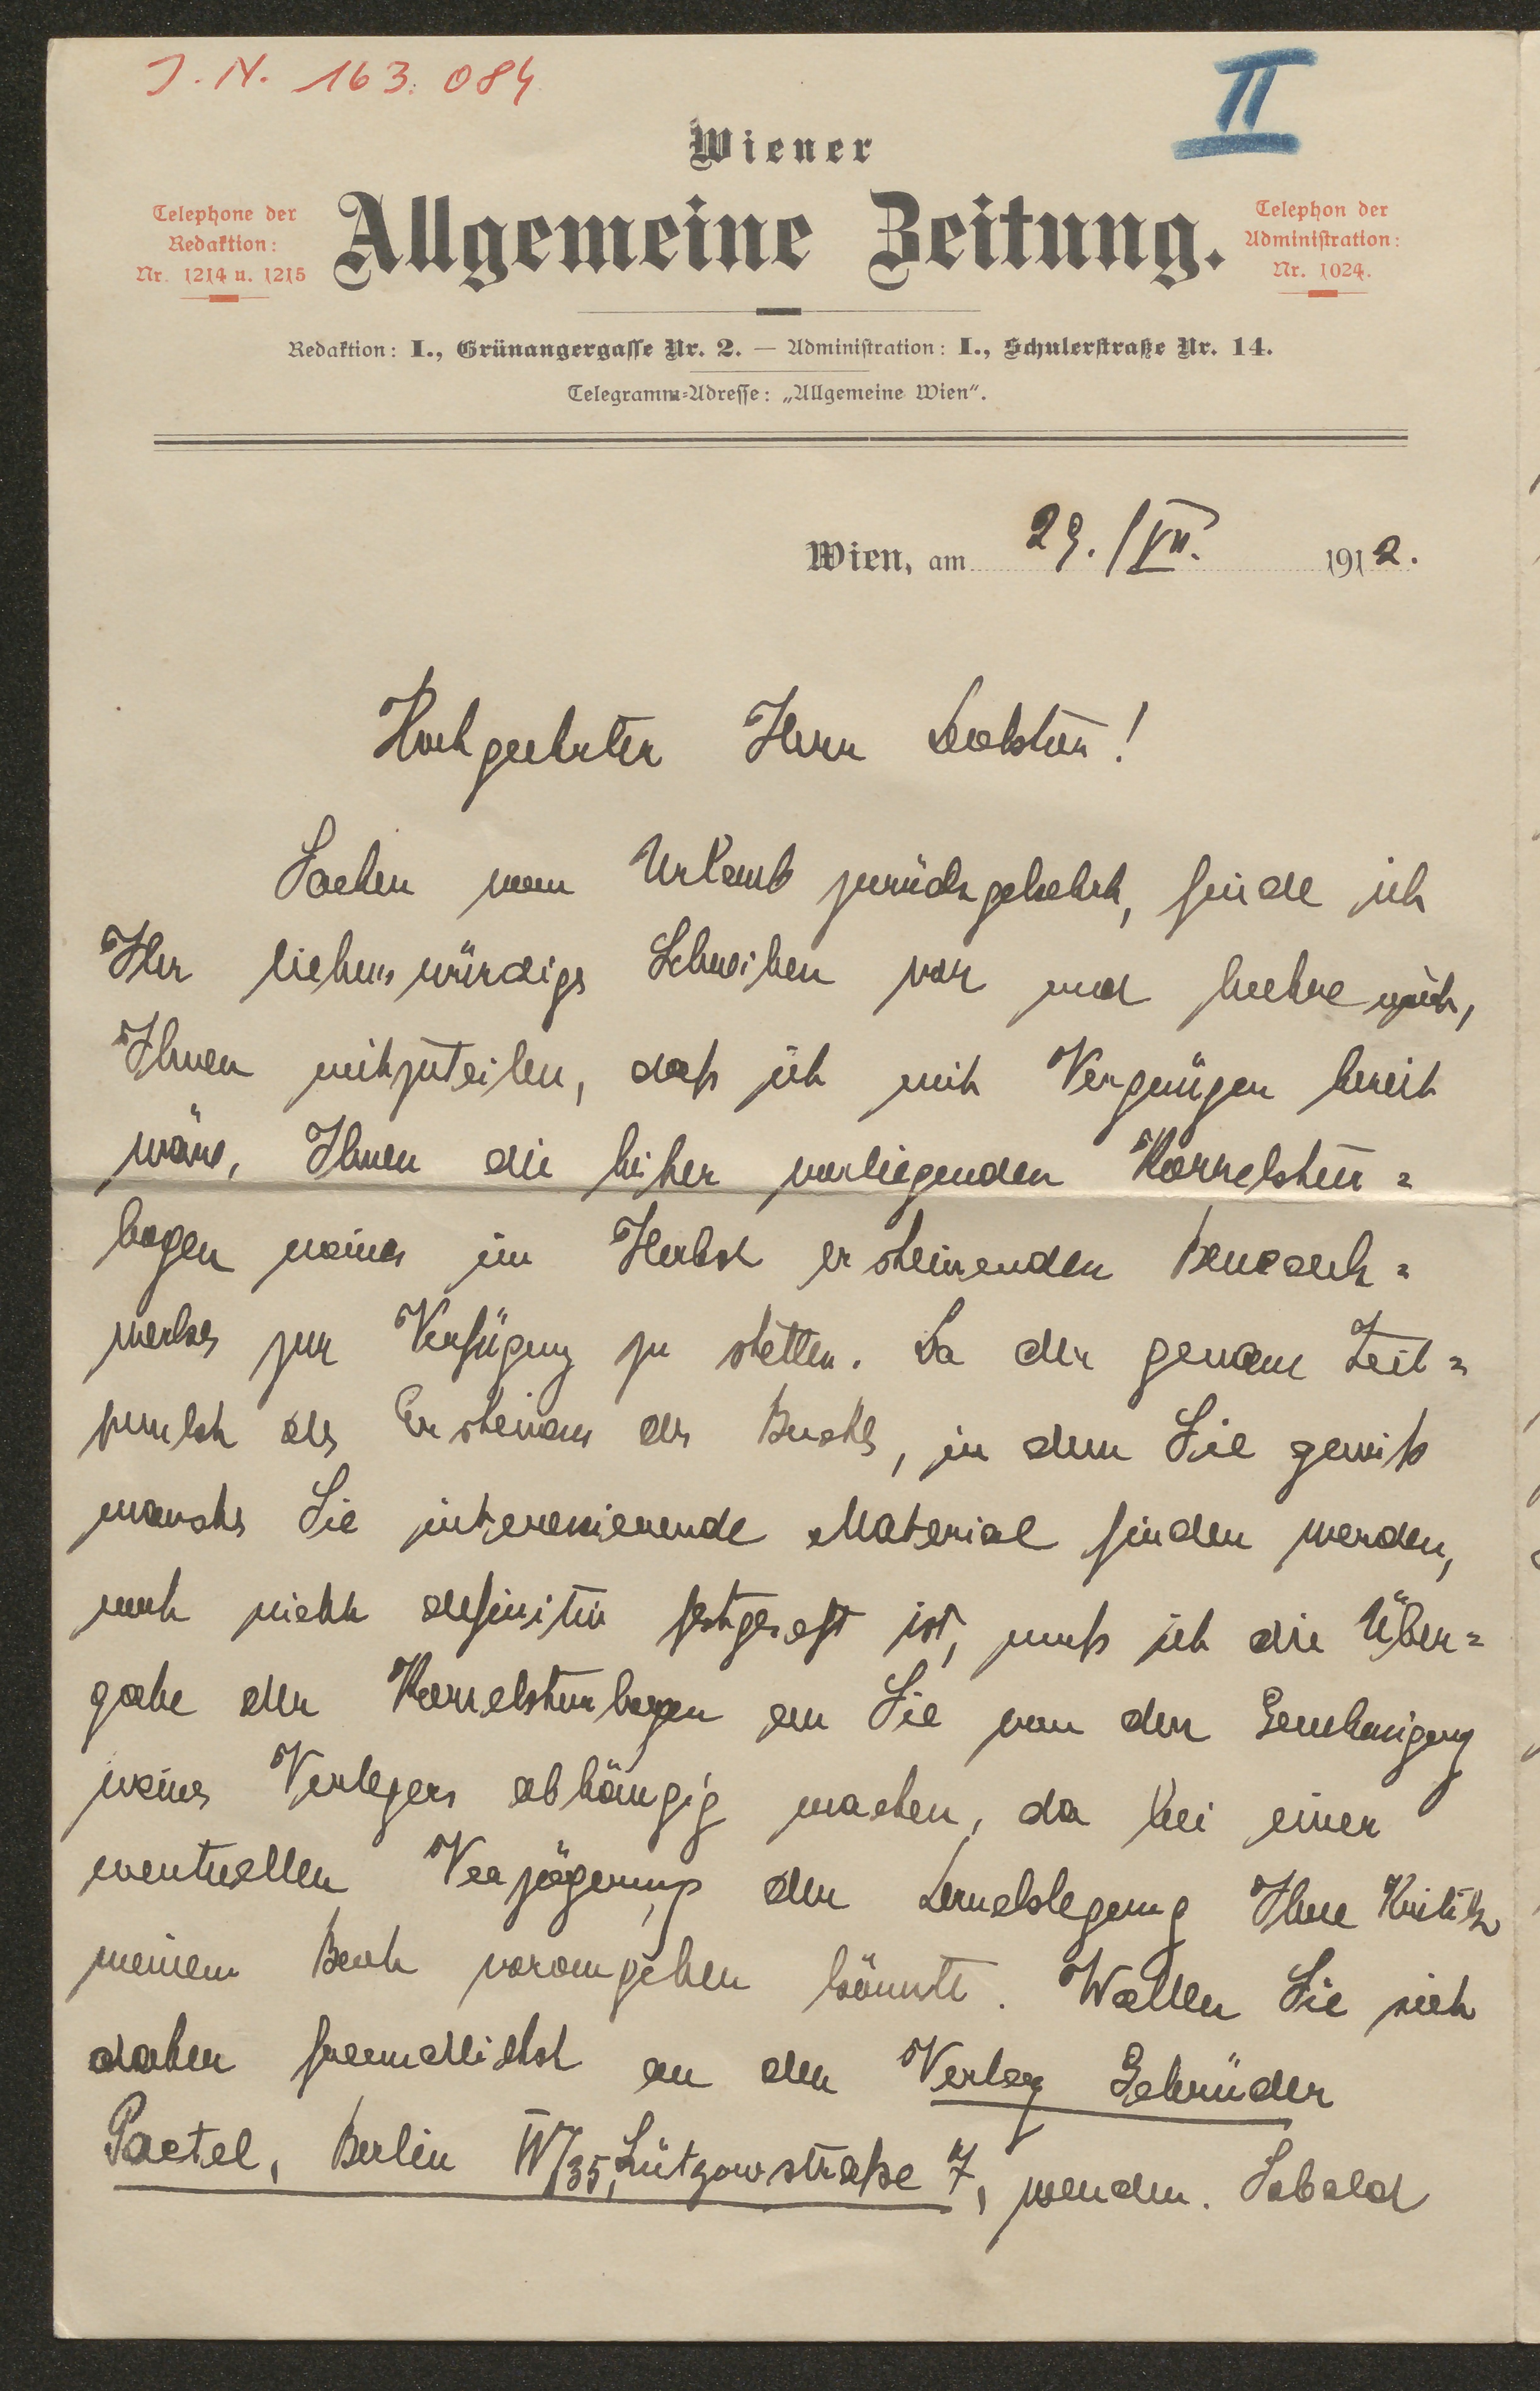 J. N. 163.084
II
Wiener
Allgemeine Zeitung.
Telephone der
Redaktion:
Nr. 1214 u. 1215
Telephon der
Administration:
Nr. 1024.
Redaktion: I., Grünangergasse Nr. 2. — Administration: I., Schulerstraße Nr. 14.
Telegramm-Adresse: „Allgemeine Wien“.
Wien, am 29. /VII. 1912.
Hochgeehrter Herr Doktor!
Soeben vom Urlaub zurückgekehrt, finde ich
Ihr liebenswürdiges Schreiben vor und beehre mich,
Ihnen mitzuteilen, daß ich mit Vergnügen bereit
wäre, Ihnen die bisher vorliegenden Korrektur=
bogen meines im Herbst erscheinenden
werkes zur Verfügung zu stellen. Da der genaue Zeit=
punkt des Erscheinens des Buches, in dem Sie gewiß
manches Sie interessierende Material finden werden,
noch nicht definitiv festgesetzt ist, muß ich die Über=
gabe der Korrekturbogen an Sie von der Genehmigung
meines Verlegers abhängig machen, da bei einer
eventuellen Verzögerung der Drucklegung Ihre Kritik
meinem Buch vorangehen könnte. Wollen Sie sich
daher freundlichst an den Verlag Gebrüder
Paetel, Berlin W/35, Lützowstraße 7, wenden. Sobald